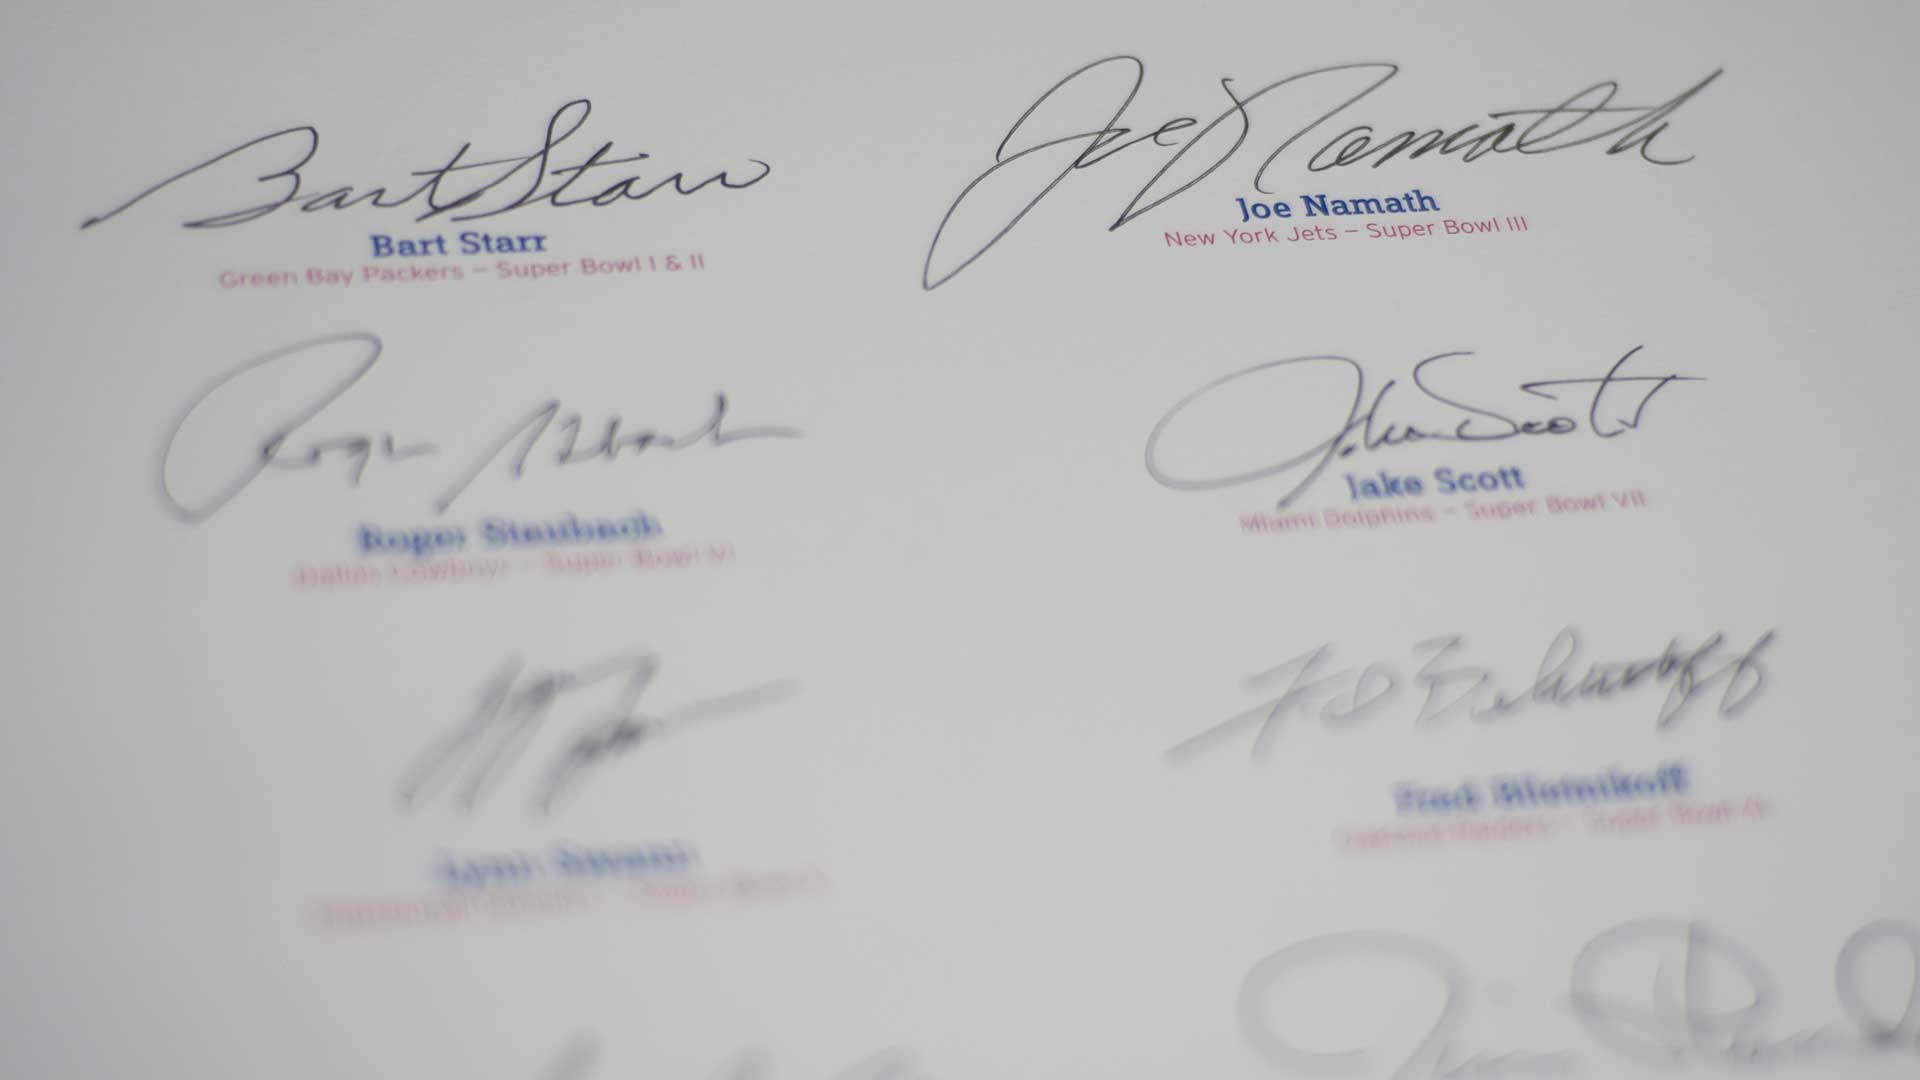 Bart Starr
Joe Namath
Bart Starr
Green Bay Packers – Super Bowl I & II
Joe Namath
New York Jets – Super Bowl III
Roger Staubach
Jake Scott
Roger Staubach
Dallas Cowboys – Super Bowl VI
Jake Scott
Miami Dolphins – Super Bowl VII
Fred Biletnikoff
Lynn Swann
Fred Biletnikoff